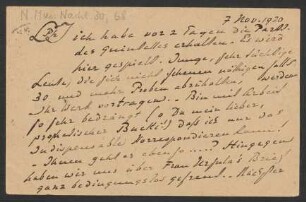 N. Mus. Nachl. 30, 58
7 Nov. 1920
L. ich habe vor 2 Tagen die Part.
des Quintettes erhalten. Es wird
hier gespielt. Junge, sehr tüchtige
Leute, die sich nicht scheuen nötigenfalls
30 und mehr Proben abzuhalten, werden
Ihr Werk vortragen. – Bin mit Arbeit
so sehr bedrängt (o Du mein lieber,
prophetischer Bucki!) daß ich nur das
Indispensable korrespondieren kann!
– Ihnen geht es eben so....? Hingegen
haben wir uns über Frau Ursula's Brief
ganz bedingungslos gefreut. – Nächster